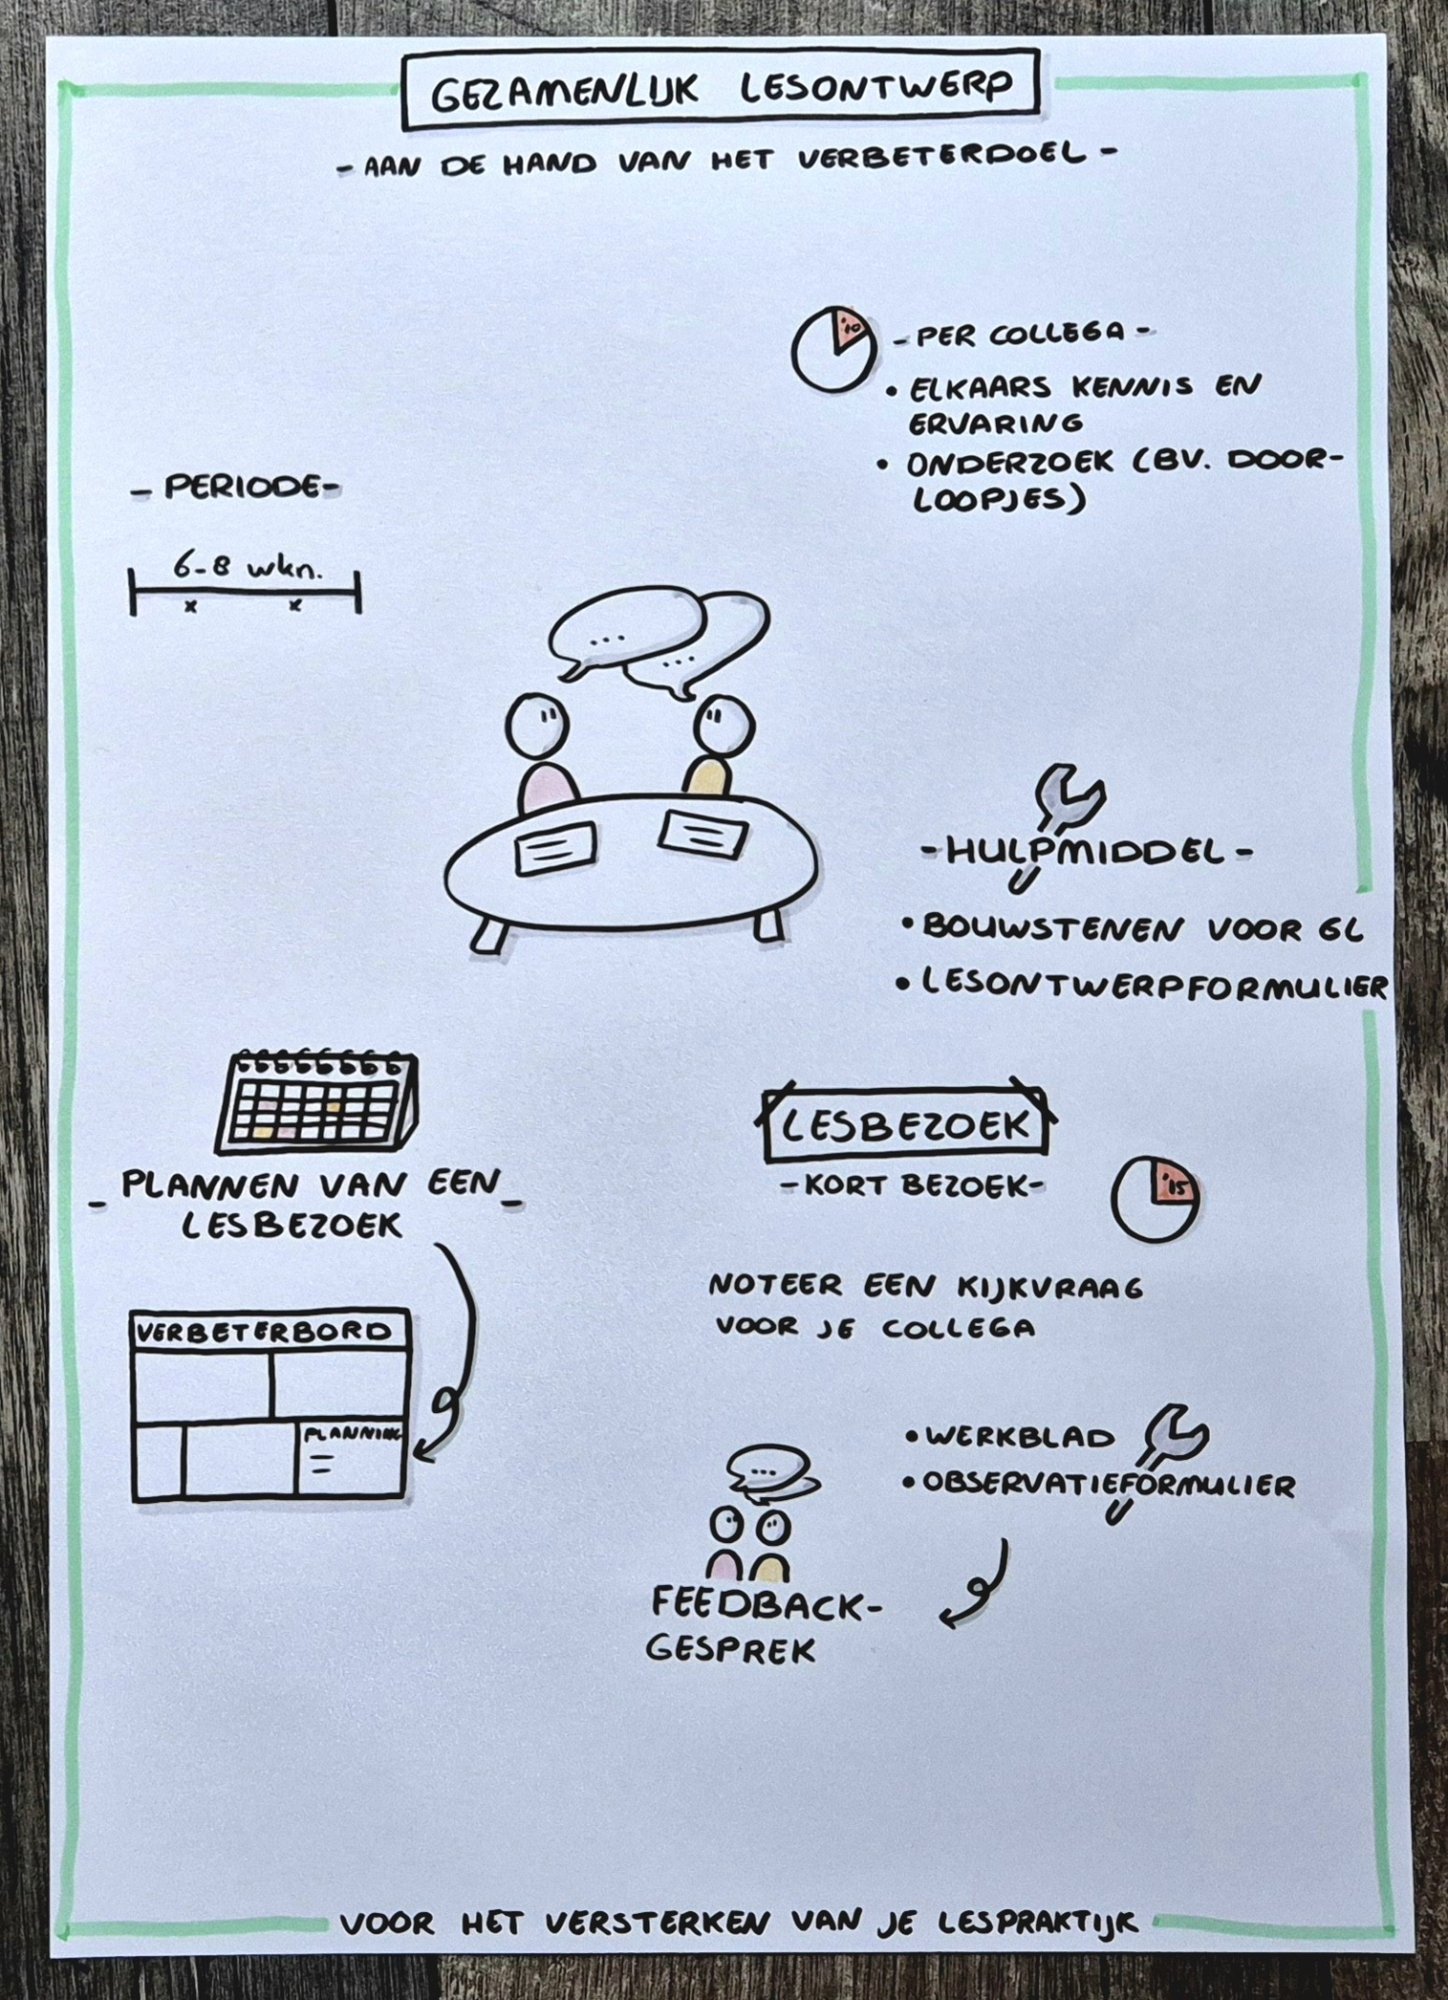 GEZAMENLIJK LESONTWERP
- AAN DE HAND VAN HET VERBETERDOEL -
'10
- PER COLLEGA -
• ELKAARS KENNIS EN
ERVARING
• ONDERZOEK (BV. DOOR-
LOOPJES)
- PERIODE -
6-8 wkn.
x x
...
...
- HULPMIDDEL -
• BOUWSTENEN VOOR GL
• LESONTWERPFORMULIER
- PLANNEN VAN EEN -
LESBEZOEK
VERBETERBORD
PLANNING
LESBEZOEK
- KORT BEZOEK -
'15
NOTEER EEN KIJKVRAAG
VOOR JE COLLEGA
• WERKBLAD
• OBSERVATIEFORMULIER
...
FEEDBACK-
GESPREK
VOOR HET VERSTERKEN VAN JE LESPRAKTIJK